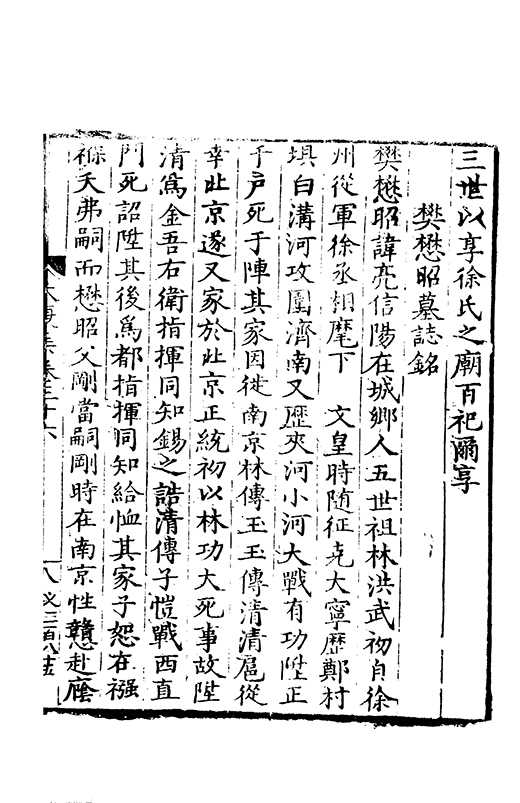 三世以享徐氏之廟百祀爾享
樊懋昭墓誌銘
樊懋昭諱亮信陽在城鄉人五世祖林洪武初自徐
州從軍徐丞相麾下 文皇時随征克大寧歷鄭村
垻白溝河攻圍濟南又歷夾河小河大戰有功陞正
千戶死于陣其家因徙南京林傳玉玉傳清清扈從
幸北京遂又家於北京正統初以林功大死事故陞
清爲金吾右衛指揮同知錫之誥清傳子愷戰西直
門死詔陞其後爲都指揮同知給恤其家子恕在襁
褓夭弗嗣而懋昭父剛當嗣剛時在南京性戇赴廕
大復集卷三十六
八